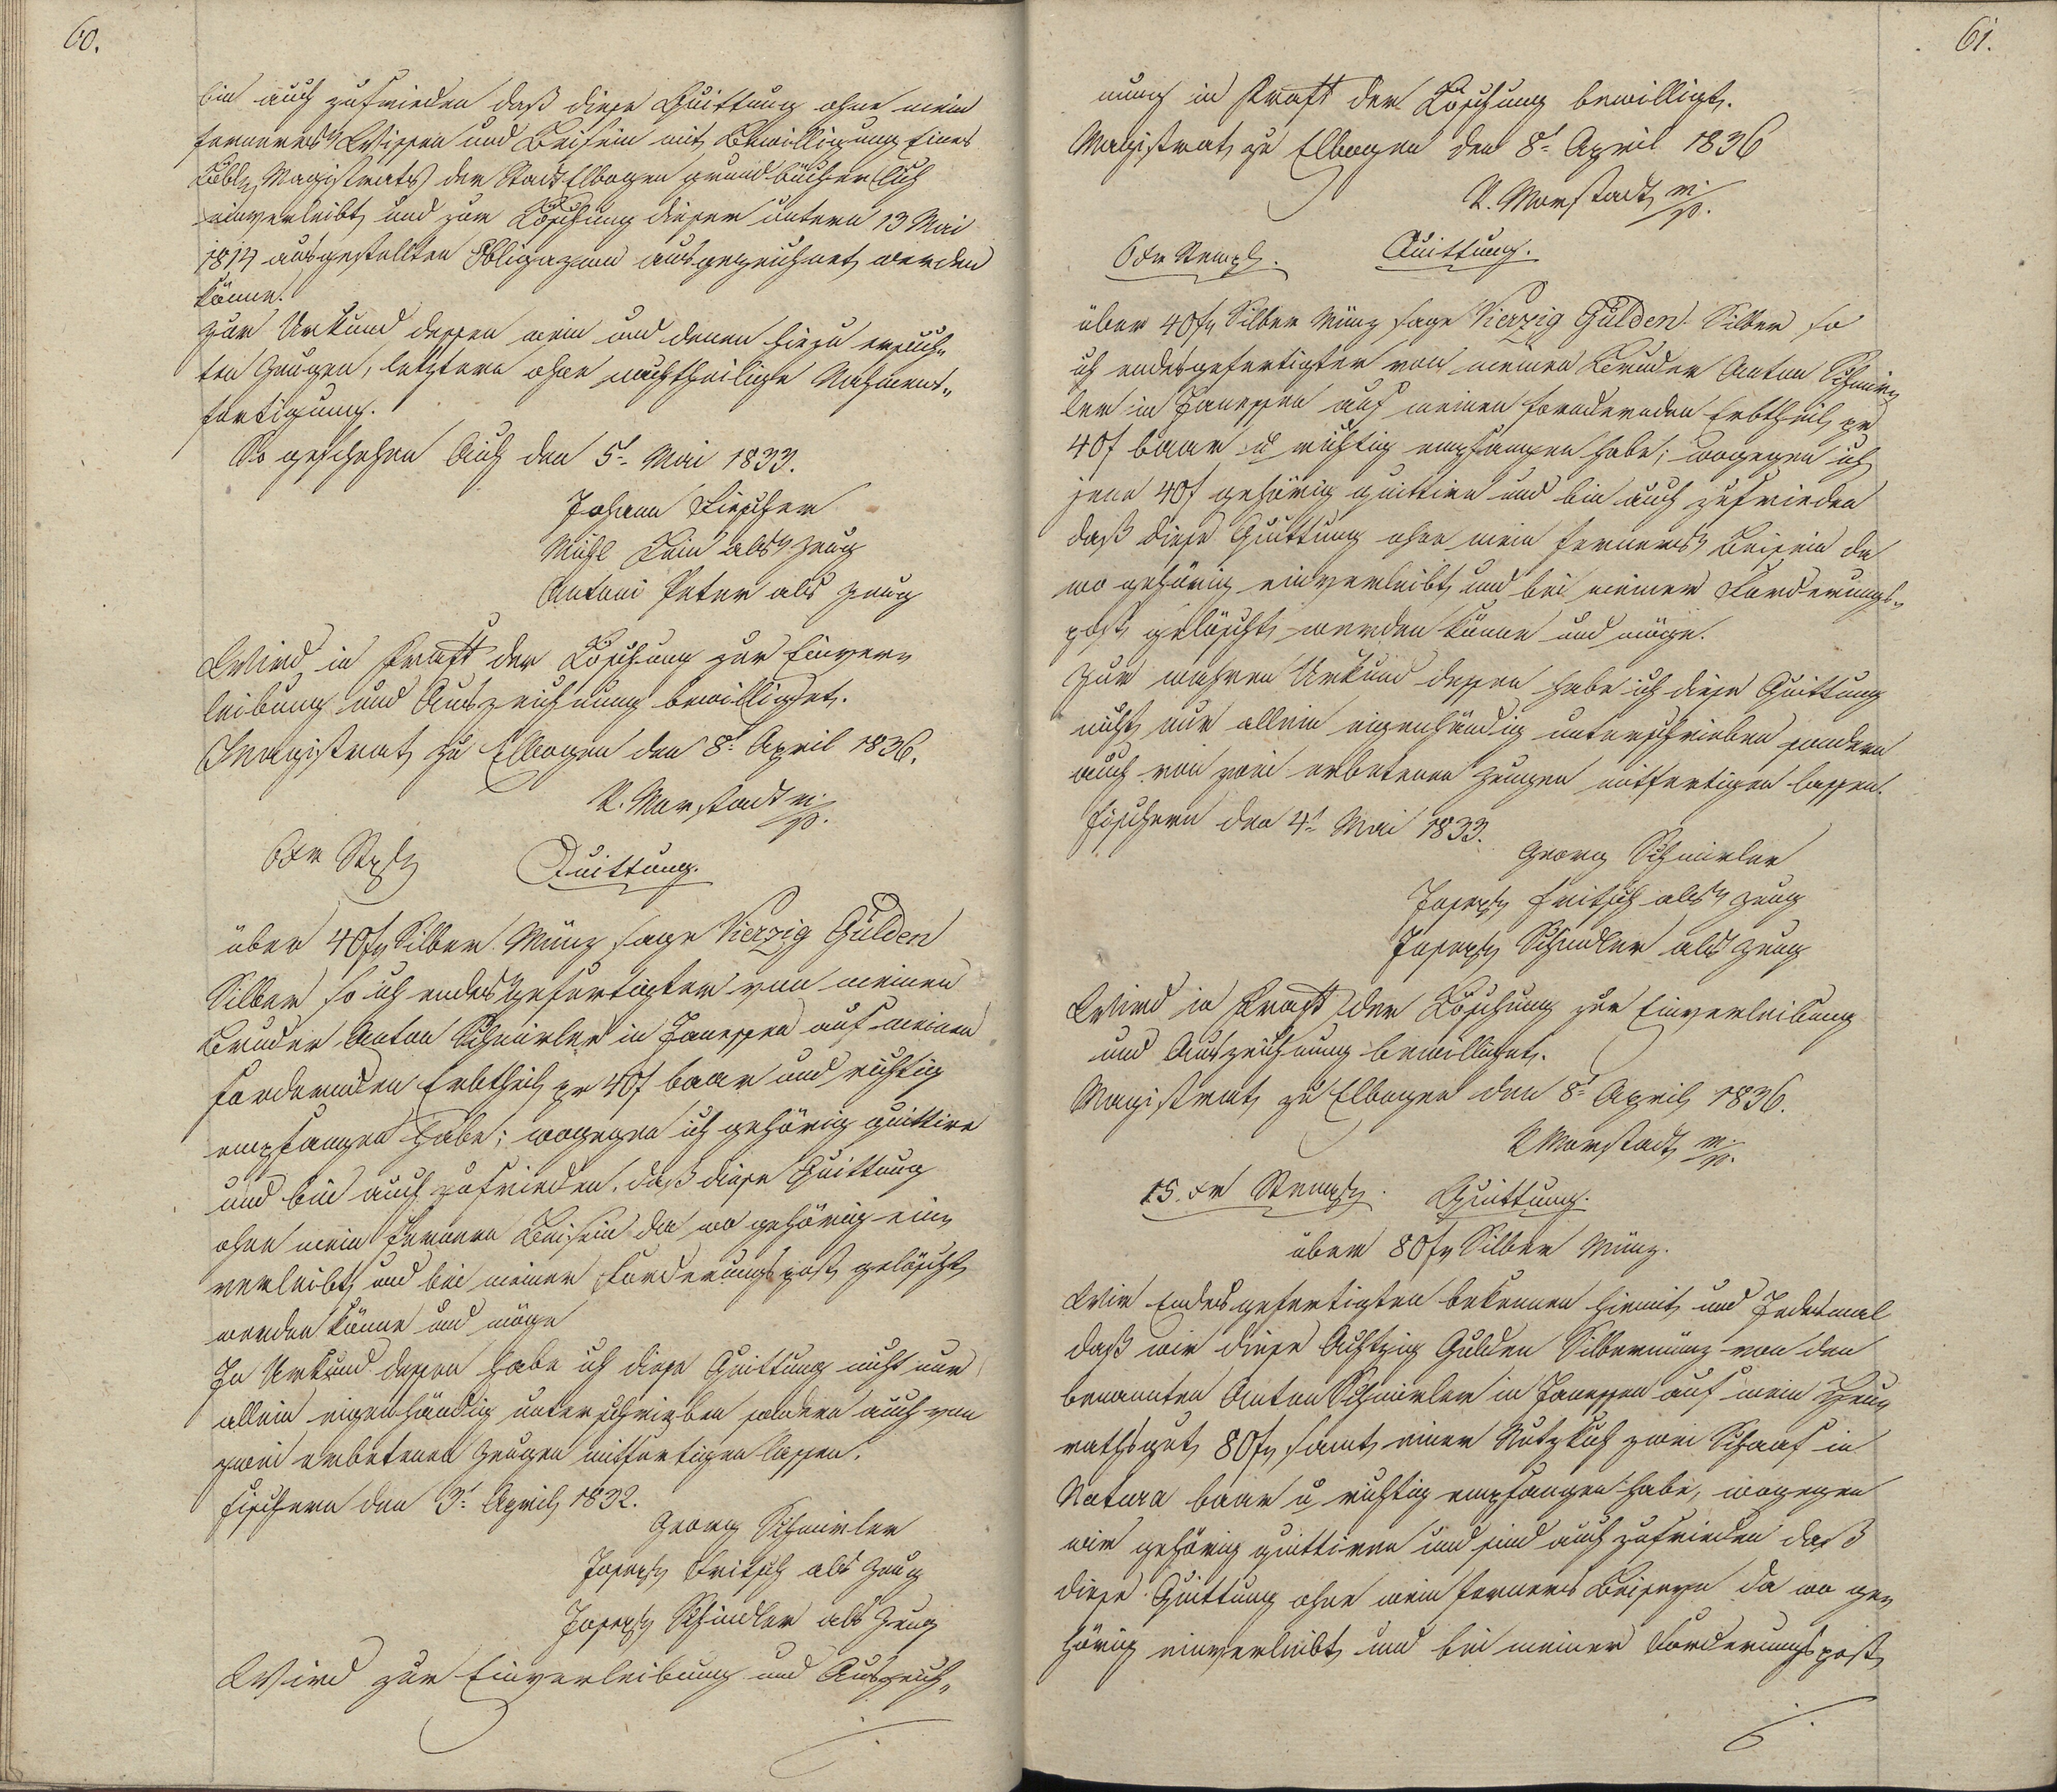 60.
bin auch zufrieden daß diese Quittung ohne mein
ferneres Wissen und Beisein mit Bewilligung Eines
Löbl. Magistrats der Stadt Elbogen grundbücherlich
einverleibt und zur Löschung dieser untern 13 Mai
1814 ausgestellten Obligazion ausgezeichnet werden
könne.
Zur Urkund dessen mein und denen hiezu ersuch„
ten Zeugen, letztern ohne nachtheilige Nahmens„
fertigung.
So geschehen Aich den 5t. Mai 1833.
Johann Fischer
Antoni Peter als Zeug
Wird in Kraft der Löschung zur Einver„
leibung und Auszeichnung bewilliget.
Magistrat zu Elbogen den 8t. April 1836.
V. Morstadt m/p.
6 Xr Stpl
Quittung.
über 40 f Silber Münz sage Vierzig Gulden
Silber so ich endesgefertigter von meinen
Bruder Anton Schmieler in Janessen auf meinen
fordernden Erbtheil pr 40 f baar und richtig
empfangen habe; wogegen ich gehörig quittire
und bin auch zufrieden, daß diese Quittung
ohne mein Fernern Beisein da wo gehörig ein„
verleibt und bei meiner Forderungspost gelöscht
werden könne und möge
In Urkund dessen habe ich diese Quittung nicht nur
allein eigenhändig unterschrieben sondern auch von
zwei erbetenen Zeugen mitfertigen lassen.
Fischern den 3t. April 1832.
Georg Schmieler
Joseph Fritsch als Zeug
Joseph Schindler als Zeug
Wird zur Einverleibung und Auszeich„
61.
nung in Kraft der Löschung bewilligt.
Magistrat zu Elbogen den 8t. April 1836
V. Morstadt m/p.
6 Xr Stempl.
Quittung.
über 40 f Silber Münz sage Vierzig Gulden Silber so
ich endesgefertigter von meinen Bruder Anton Schmie„
ler in Janessen auf meinen fordernden Erbtheil pr
40 f baar u richtig empfangen habe; wogegen ich
jene 40 f gehörig quittire und bin auch zufrieden
daß diese Quittung ohne mein ferneres Beisein da
wo gehörig einverleibt und bei meiner Forderungs„
post gelöscht werden könne und möge.
Zur wahren Urkund dessen habe ich diese Quittung
nicht nur allein eigenhändig unterschrieben sondern
auch von zwei erbetenen Zeugen mitfertigen lassen.
Fischern den 4t. Mai 1833.
Georg Schmieler
Joseph Fritsch als Zeug
Joseph Schindler als Zeug
Wird in Kraft der Löschung zur Einverleibung
und Auszeichnung bewilliget.
Magistrat zu Elbogen den 8t. April 1836.
V Morstadt m/p.
15. Xr Stempl.
Quittung.
über 80 f Silber Münz.
Wir Endesgefertigten bekennen hiemit und Jedesmal
daß wir diese Achtzig Gulden Silbermünz von den
benannten Anton Schmieler in Janessen auf mein Heu„
rathsgut 80 f samt einer Nutzkuh zwei Schaaf in
Natura baar u richtig empfangen habe, wogegen
wir gehörig quittiren und sind auch zufrieden daß
diese Quittung ohne mein ferneres Beiseyn da wo ge„
hörig einverleibt und bei meiner Forderungspost